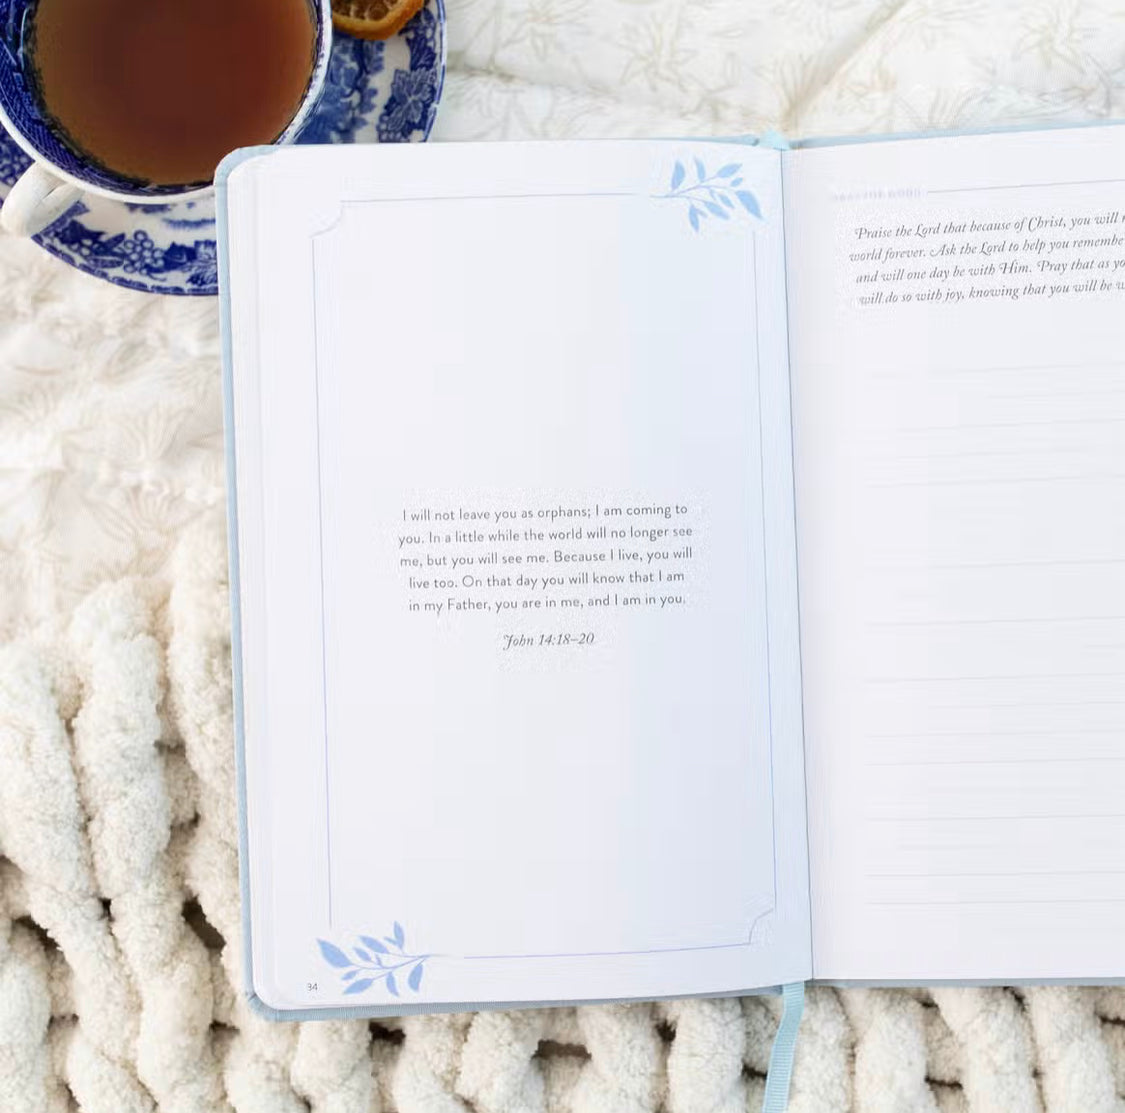 I will not leave you as orphans; I am coming to
you. In a little while the world will no longer see
me, but you will see me. Because I live, you will
live too. On that day you will know that I am
in my Father, you are in me, and I am in you.
John 14:18–20
34
Praise the Lord that because of Christ, you will
world forever. Ask the Lord to help you remembe
and will one day be with Him. Pray that as yo
will do so with joy, knowing that you will be w